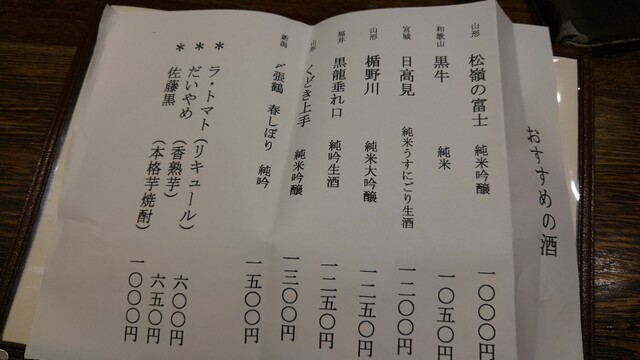 おすすめの酒
山形 松嶺の富士 純米吟醸 一〇〇〇円
和歌山 黒牛 純米 一〇五〇円
宮城 日高見 純米うすにごり生酒 一二〇〇円
山形 楯野川 純米大吟醸 一二五〇円
福井 黒龍垂れ口 純吟生酒 一二五〇円
山形 くどき上手 純米吟醸 一三〇〇円
新潟 〆張鶴 春しぼり 純吟 一五〇〇円
* ラ・トマト(リキュール) 六〇〇円
* だいやめ (香熟芋) 六五〇円
* 佐藤黒 (本格芋焼酎) 一〇〇〇円